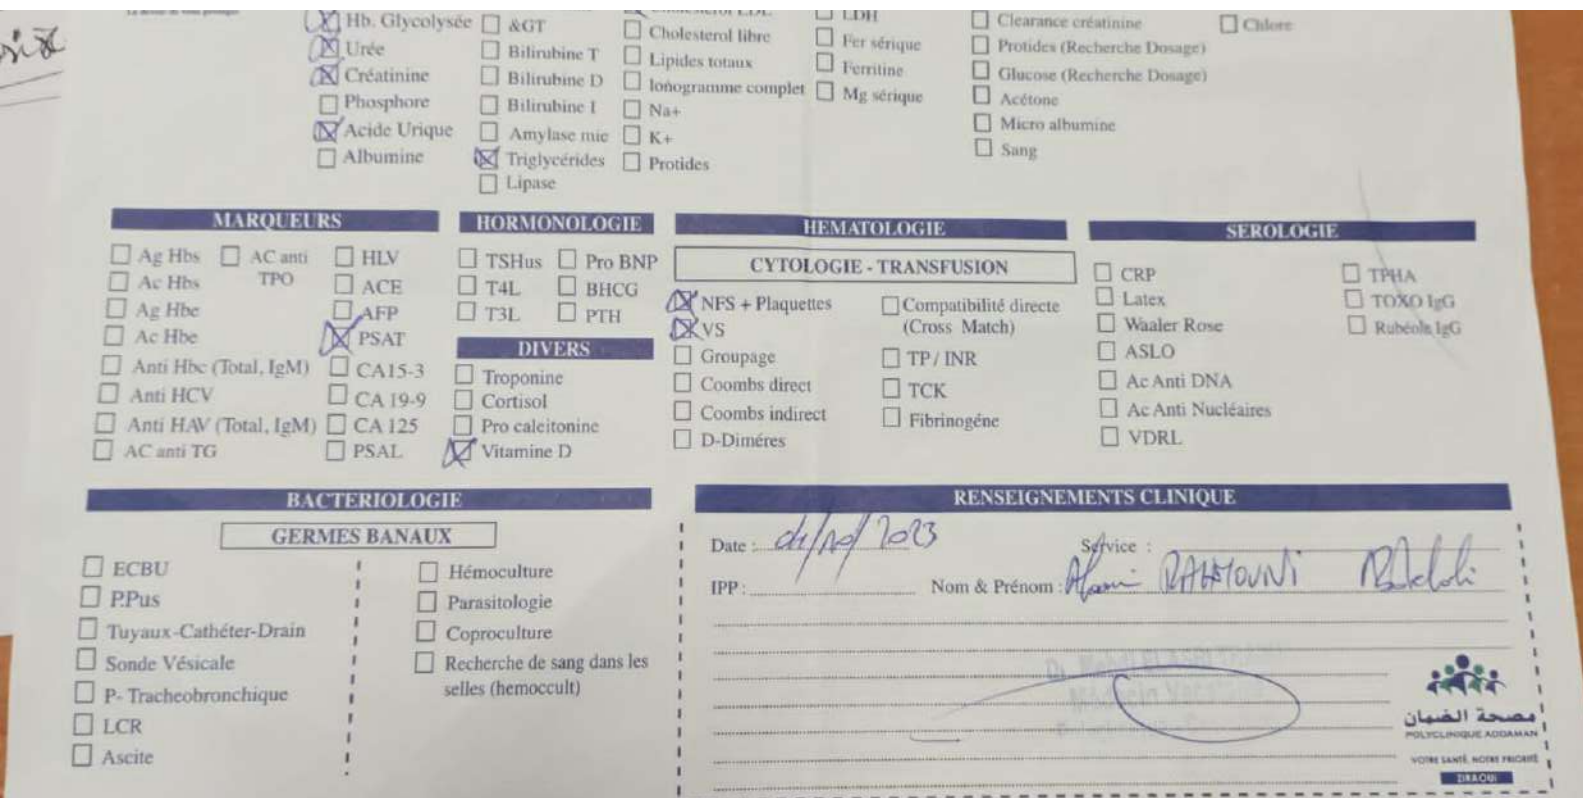 Hb. Glycolysée
Urée
Créatinine
Phosphore
Acide Urique
Albumine
&GT
Bilirubine T
Bilirubine D
Bilirubine I
Amylase mie
Triglycérides
Lipase
Cholesterol LDL
Cholesterol libre
Lipides totaux
Ionogramme complet
Na+
K+
Protides
LDH
Fer sérique
Ferritine
Mg sérique
Clearance créatinine
Protides (Recherche Dosage)
Glucose (Recherche Dosage)
Acétone
Micro albumine
Sang
Chlore
MARQUEURS
Ag Hbs
Ac Hbs
Ag Hbe
Ac Hbe
Anti Hbc (Total, IgM)
Anti HCV
Anti HAV (Total, IgM)
AC anti TG
AC anti
TPO
HLV
ACE
AFP
PSAT
CA15-3
CA 19-9
CA 125
PSAL
HORMONOLOGIE
TSHus
T4L
T3L
Pro BNP
BHCG
PTH
DIVERS
Troponine
Cortisol
Pro calcitonine
Vitamine D
HEMATOLOGIE
CYTOLOGIE - TRANSFUSION
NFS + Plaquettes
VS
Groupage
Coombs direct
Coombs indirect
D-Diméres
Compatibilité directe
(Cross Match)
TP / INR
TCK
Fibrinogéne
SEROLOGIE
CRP
Latex
Waaler Rose
ASLO
Ac Anti DNA
Ac Anti Nucléaires
VDRL
TPHA
TOXO IgG
Rubéole IgG
BACTERIOLOGIE
GERMES BANAUX
ECBU
P.Pus
Tuyaux-Cathéter-Drain
Sonde Vésicale
P- Tracheobronchique
LCR
Ascite
Hémoculture
Parasitologie
Coproculture
Recherche de sang dans les
selles (hemoccult)
RENSEIGNEMENTS CLINIQUE
Date : 2023 Service :
IPP : Nom & Prénom :
مصحة الضمان
POLYCLINIQUE ADDAMAN
VOTRE SANTÉ, NOTRE PRIORITÉ
ZIRAOUI